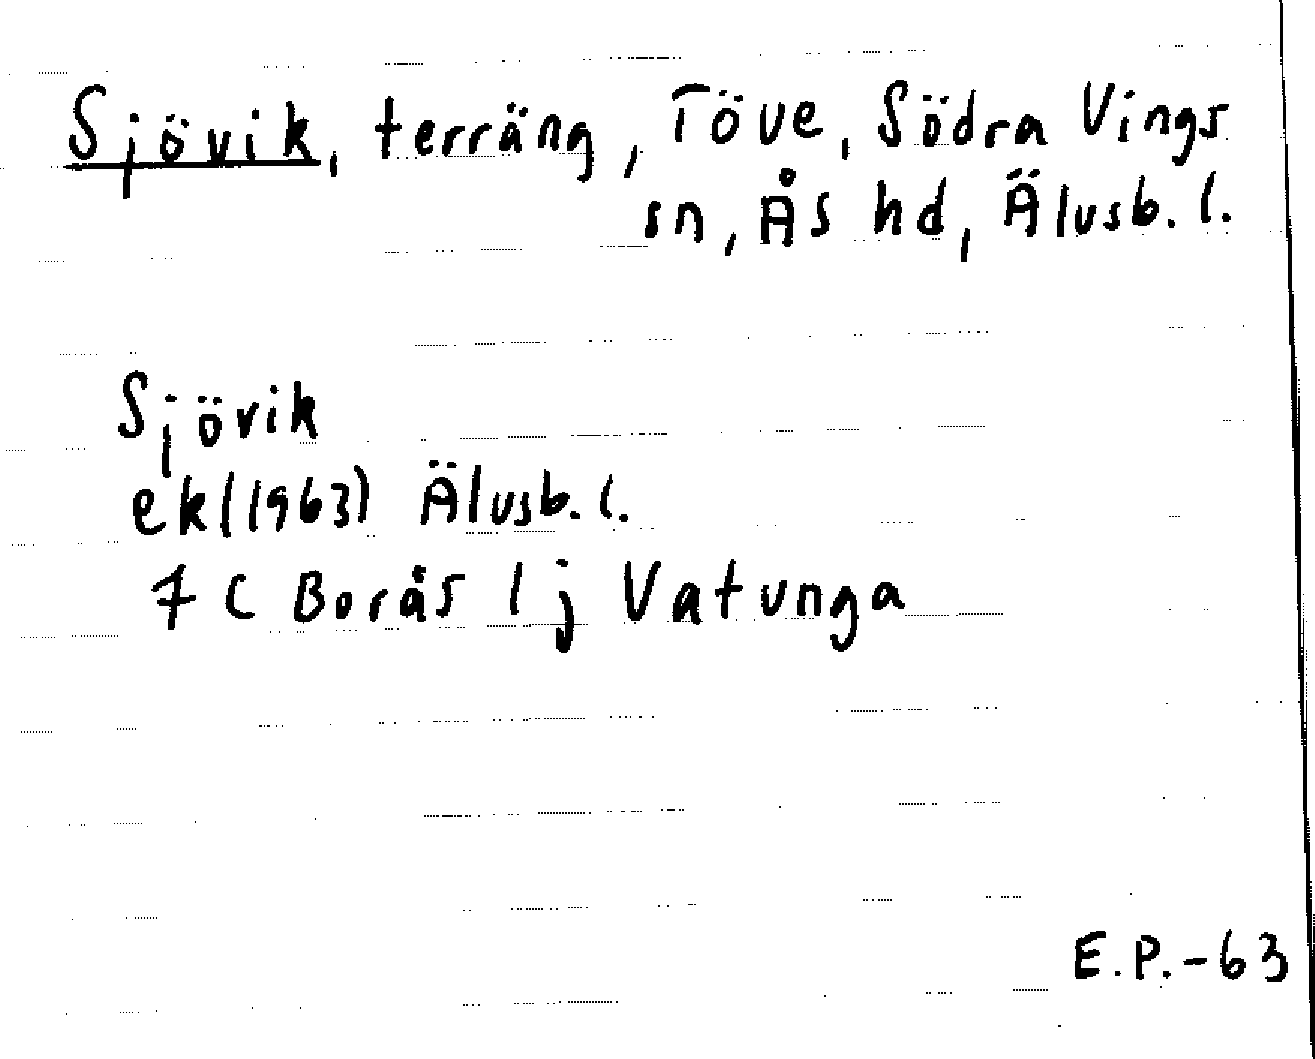 Sjövik, terräng, Töve, Södra Vings
sn, Ås hd, Älvsb. l.
Sjövik
ek (1963) Älvsb. l.
7 C Borås 1 j Vatunga
E.P.-63